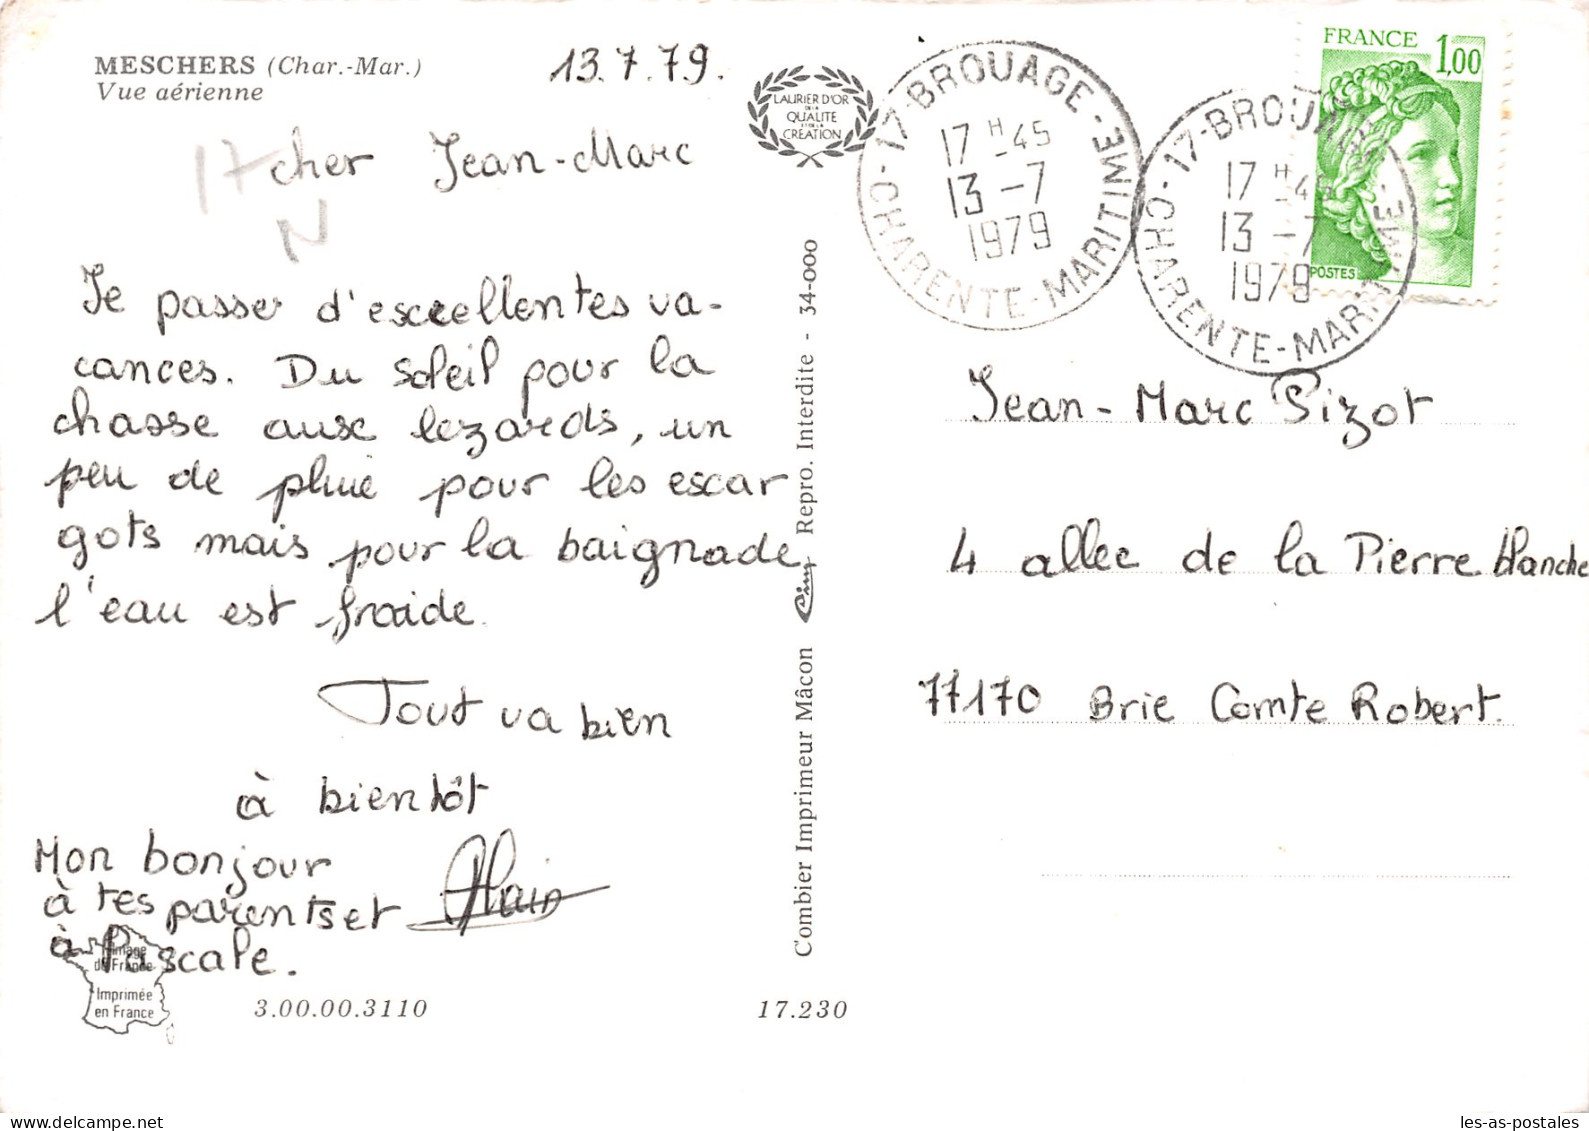 MESCHERS (Char.-Mar.)
Vue aérienne
13.7.79.
LAURIER D'OR
DE LA
QUALITE
ET DE LA
CREATION
17-BROUAGE-
17 H -45
13 -7
1979
CHARENTE-MARITIME
17-BROUAGE
17 H -45
13 -7
1979
CHARENTE-MARITIME
FRANCE 1,00
POSTES
17
N
cher Jean-Marc
Je passer d'escellentes va-
cances. Du soleil pour la
chasse ause lezards, un
peu de pluie pour les escar
gots mais pour la baignade
l'eau est froide.
Tout va bien
à bientôt
Mon bonjour
à tes parents et
à Pascale.
Alain
Image
de France
Imprimée
en France
3.00.00.3110
17.230
Combier Imprimeur Mâcon Cim Repro. Interdite - 34-000
Jean-Marc Pizot
4 allee de la Pierre blanche
77170 Brie Comte Robert.
les-as-postales
delcampe.net